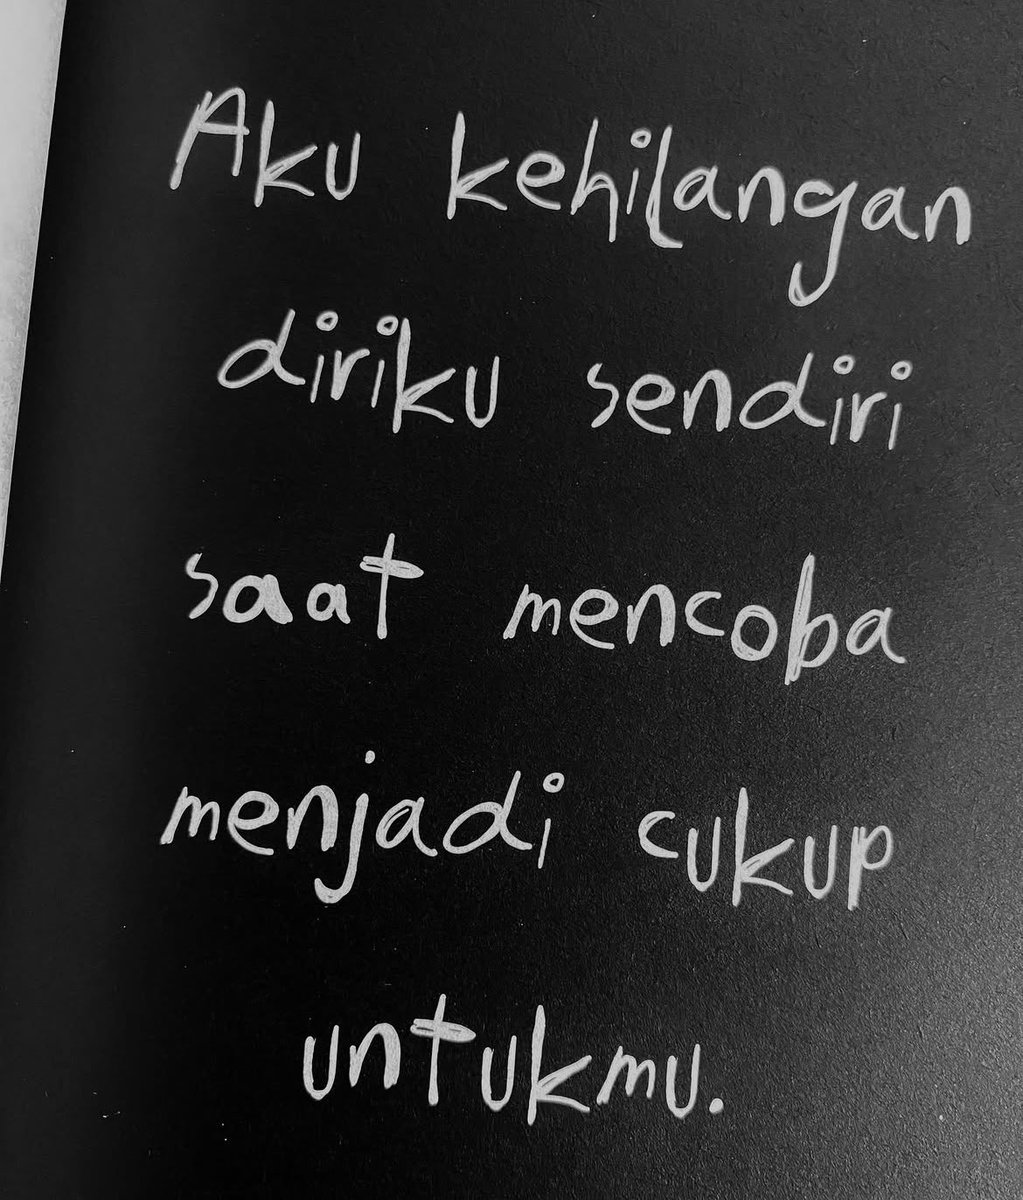 Aku kehilangan
diriku sendiri
saat mencoba
menjadi cukup
untukmu.